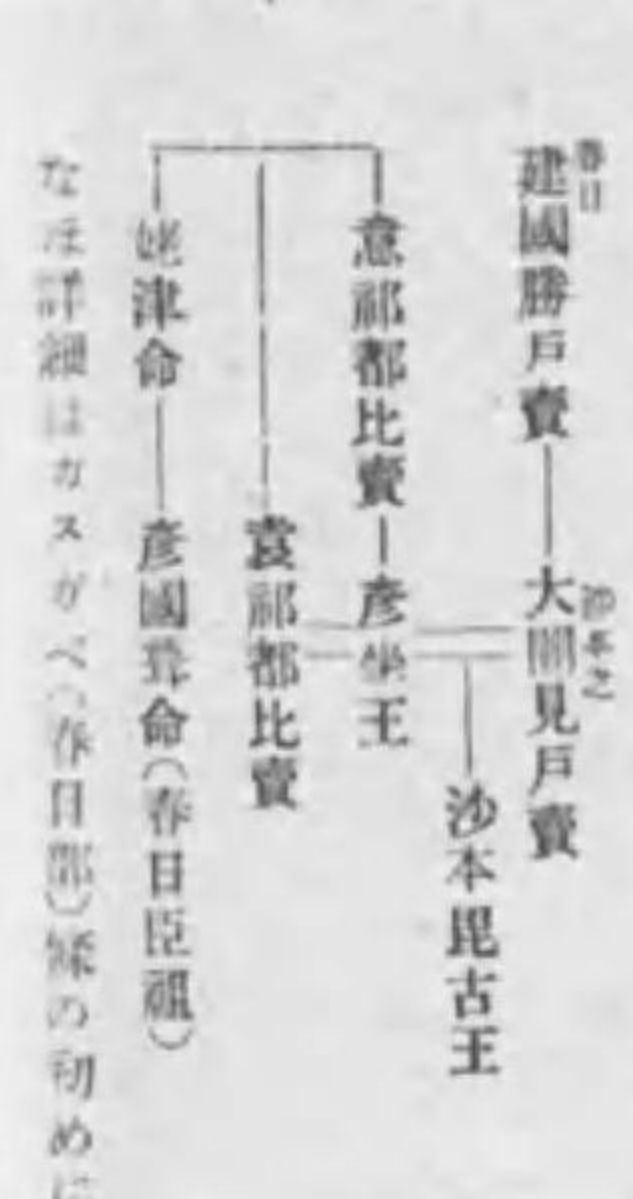 春日
建國勝戶賣
沙本之
大闇見戶賣
沙本毘古王
意祁都比賣
彦坐王
袁祁都比賣
姥津命
彦國葺命(春日臣祖)
なほ詳細はカスガベ(春日部)條の初めに